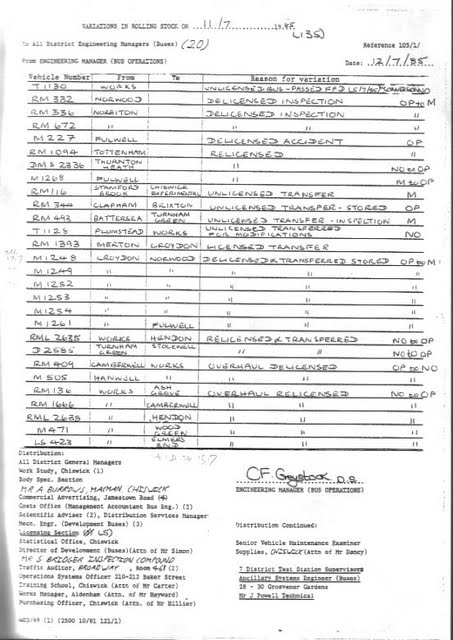 VARIATIONS IN ROLLING STOCK ON 11/7 1985
(135)
To All District Engineering Managers (Buses) (20) Reference 105/1/
From ENGINEERING MANAGER (BUS OPERATIONS) Date: 12/7/85
Vehicle Number From To Reason for variation
T 1130 WORKS UNLICENSED BUS - PASSED FFD
RM 332 NORWOOD DELICENSED INSPECTION OP to M
RM 336 NORBITON DELICENSED INSPECTION "
RM 672 " " "
M 227 FULWELL DELICENSED ACCIDENT OP
RM 1094 TOTTENHAM RELICENSED "
DMS 2336 THORNTON HEATH " NO to OP
M 1268 FULWELL " M to OP
RM 116 STAMFORD BROOK CHISWICK EXPERIMENTAL UNLICENSED TRANSFER M
RM 344 CLAPHAM BRIXTON UNLICENSED TRANSFER - STORED OP
RM 492 BATTERSEA TURNHAM GREEN UNLICENSED TRANSFER - INSPECTION M
T 1128 PLUMSTEAD WORKS UNLICENSED TRANSFERRED FOR MODIFICATIONS NO
RM 1393 MERTON CROYDON LICENSED TRANSFER
M 1248 CROYDON NORWOOD DELICENSED & TRANSFERRED STORED OP to M
M 1249 " " " "
M 1252 " " " "
M 1253 " " " "
M 1254 " " " "
M 1261 " FULWELL " "
RML 2635 WORKS HENDON RELICENSED & TRANSFERRED NO to OP
D 2585 TURNHAM GREEN STOCKWELL " " NO to OP
RM 409 CAMBERWELL WORKS OVERHAUL DELICENSED OP to NO
M 505 HANWELL " " "
RM 136 WORKS ASH GROVE OVERHAUL RELICENSED NO to OP
RM 1666 " CAMBERWELL " " "
RML 2635 " HENDON " " "
M 471 " WOOD GREEN " " "
LS 423 " ELMERS END " " "
Distribution:
All District General Managers
Work Study, Chiswick (1)
Body Spec. Section
MR A BURROWS, CHISWICK
Commercial Advertising, Jamestown Road (4)
Costs Office (Management Accountant Bus Eng.) (2)
Scientific Adviser (2), Distribution Services Manager
Mech. Engr. (Development Buses) (3)
Licensing Section
Statistical Office, Chiswick
Director of Development (Buses)(Attn of Mr Simon)
MR S BRIDGER INSPECTION COMPOUND
Traffic Auditor, BROADWAY, (Room
Operations Systems Officer 210-212 Baker Street
Training School, Chiswick (Attn of Mr Carter)
Works Manager, Aldenham (Attn. of Mr Hayward)
Purchasing Officer, Chiswick (Attn of Mr Hillier)
ENGINEERING MANAGER (BUS OPERATIONS)
Distribution Continued:
Senior Vehicle Maintenance Examiner
Supplies, CHISWICK (Attn of Mr Dancy)
7 District Test Station Supervisors
Ancillary Systems Engineer (Buses)
28 - 30 Grosvenor Gardens
Mr J Powell Technical
(1) (2500 10/81 121/1)